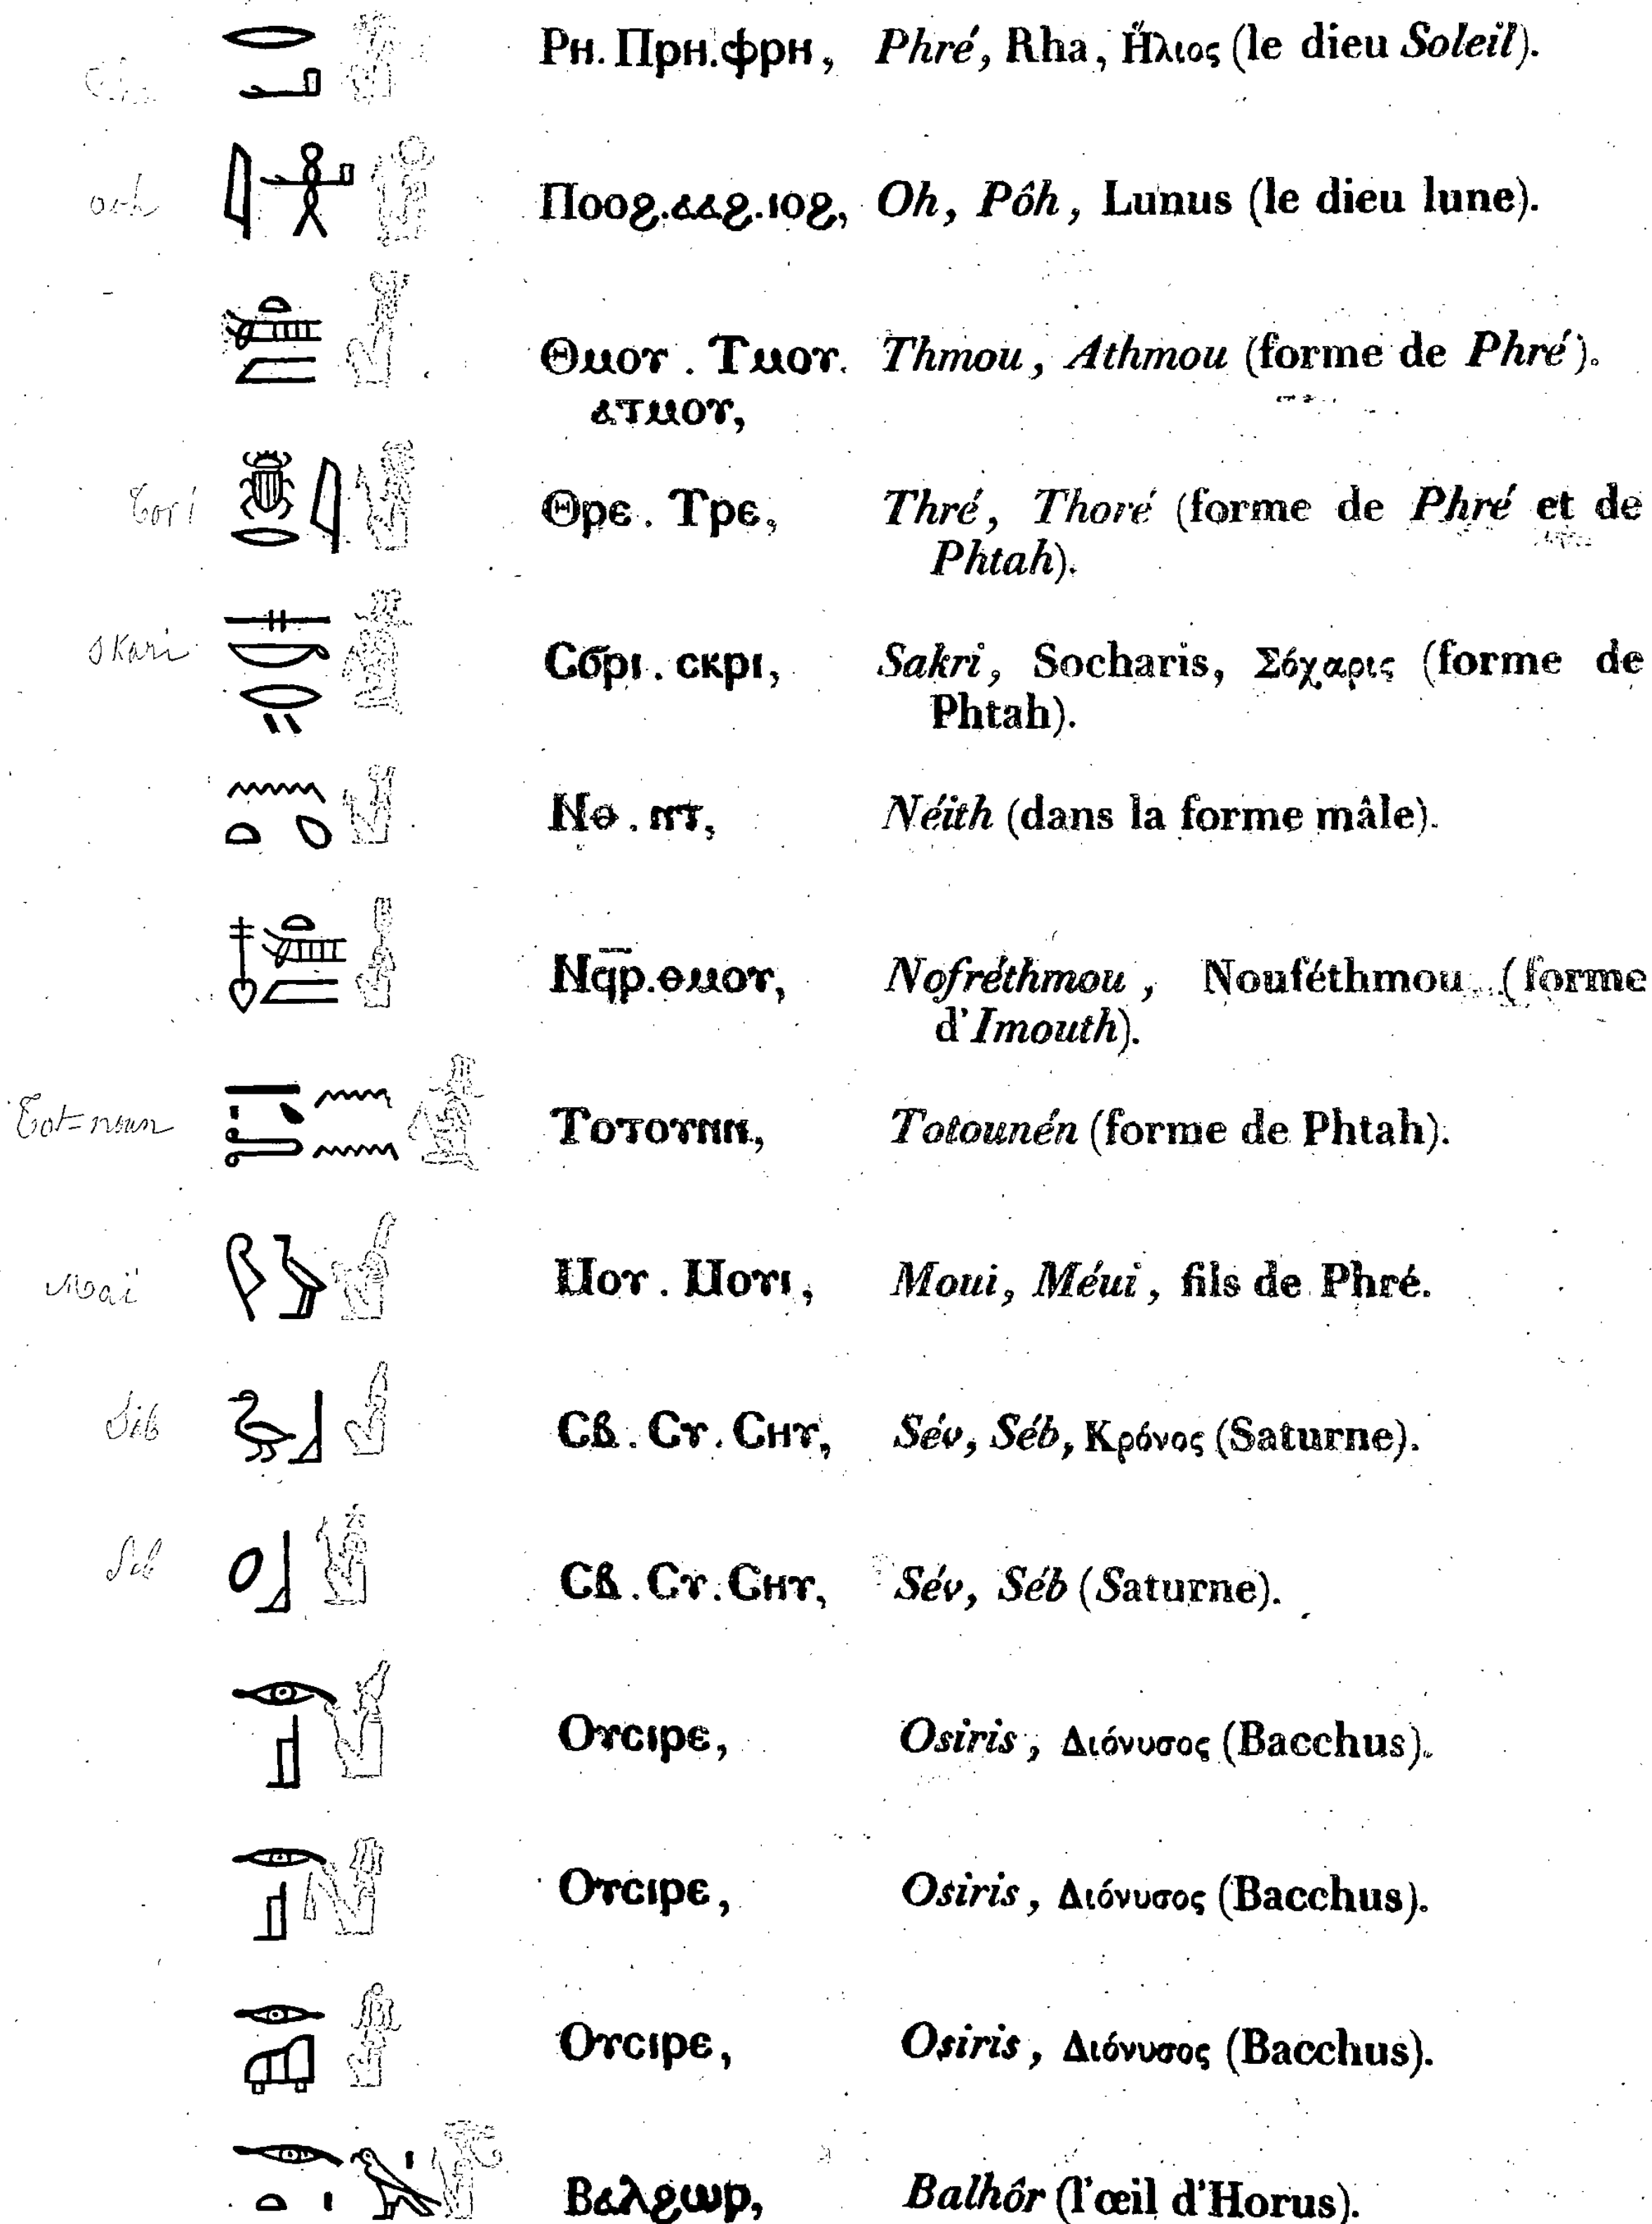 Ⲣⲏ. Ⲡⲣⲏ.ⲫⲣⲏ, Phré, Rha, Ἥλιος (le dieu Soleil).
ooh Ⲡⲟⲟϩ.ⲁⲁϩ.ⲓⲟϩ, Oh, Pôh, Lunus (le dieu lune).
Ⲑⲙⲟⲩ . Ⲧⲙⲟⲩ. Thmou, Athmou (forme de Phré).
ⲁⲧⲙⲟⲩ,
Tori Ⲑⲣⲉ . Ⲧⲣⲉ, Thré, Thoré (forme de Phré et de
Phtah).
skari Ⲥϭⲣⲓ . ⲥⲕⲣⲓ, Sakri, Socharis, Σόχαρις (forme de
Phtah).
Ⲛⲑ . ⲛⲧ, Néith (dans la forme mâle).
Ⲛϥⲣ̅.ⲑⲙⲟⲩ, Nofréthmou, Nouféthmou (forme
d'Imouth).
Tot=noun Ⲧⲟⲧⲟⲩⲛⲛ, Totounén (forme de Phtah).
Moai Ⲙⲟⲩ . Ⲙⲟⲩⲓ, Moui, Méui, fils de Phré.
Sèb Ⲥⲃ . Ⲥⲩ . Ⲥⲏⲩ, Sév, Séb, Κρόνος (Saturne).
Seb Ⲥⲃ . Ⲥⲩ . Ⲥⲏⲩ, Sév, Séb (Saturne).
Ⲟⲩⲥⲓⲣⲉ, Osiris, Διόνυσος (Bacchus).
Ⲟⲩⲥⲓⲣⲉ, Osiris, Διόνυσος (Bacchus).
Ⲟⲩⲥⲓⲣⲉ, Osiris, Διόνυσος (Bacchus).
Ⲃⲁⲗϩⲱⲣ, Balhôr (l'œil d'Horus).